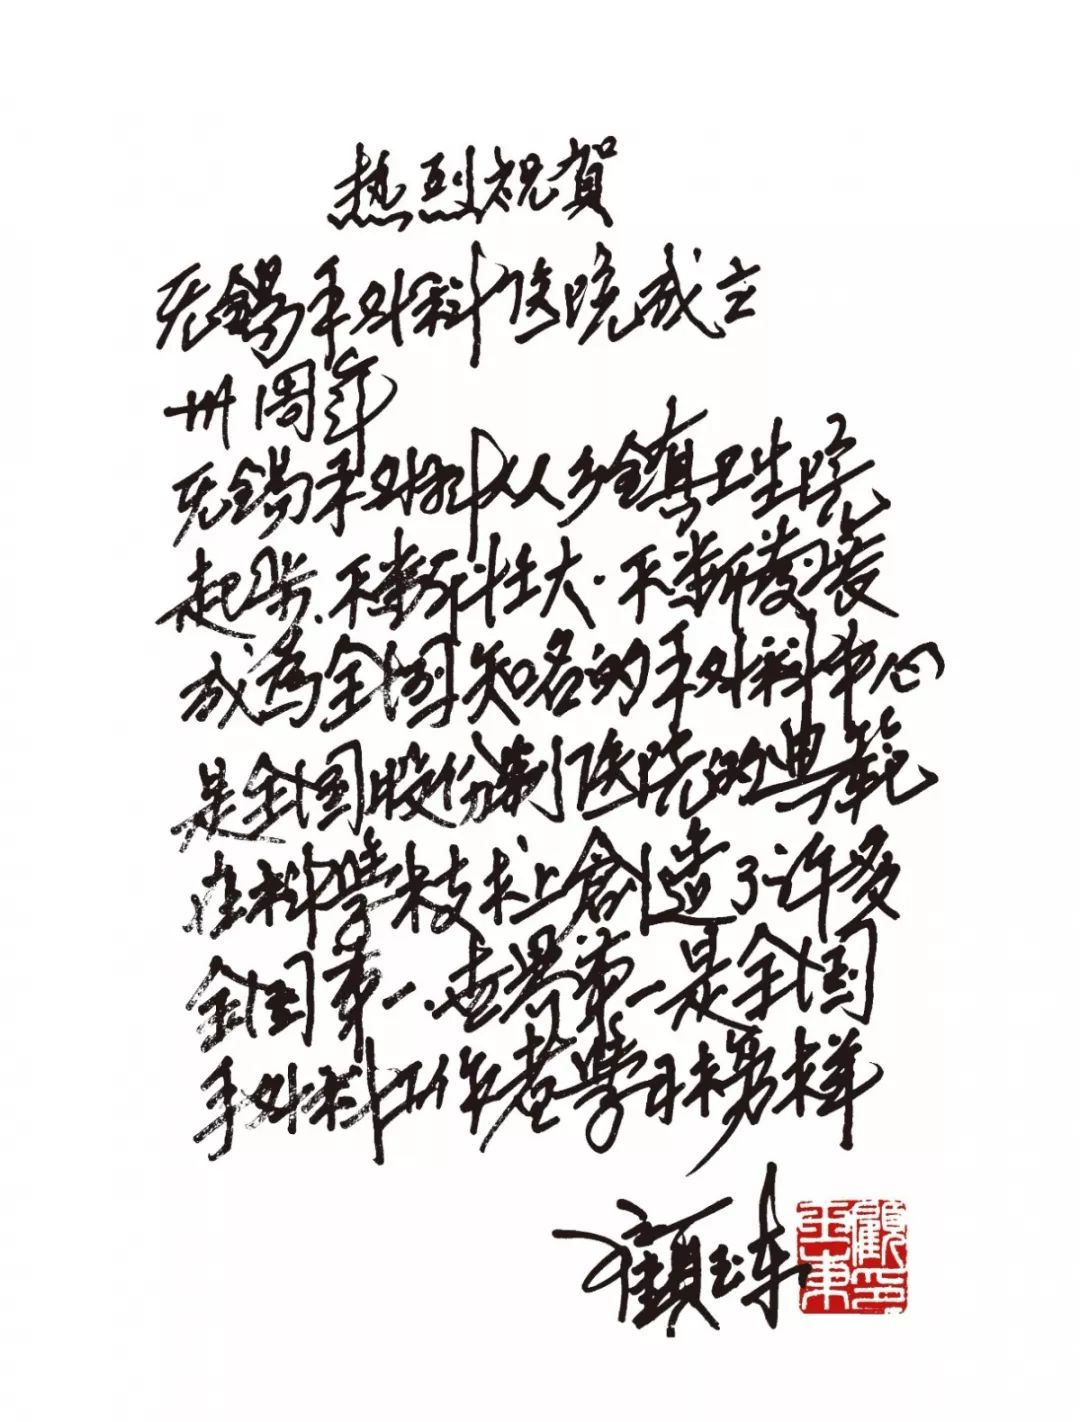 热烈祝賀
无锡手外科医院成立
卅周年
无锡手外科从乡镇卫生院
起步.不断壮大.不断發展
成為全國知名的手外科中心
是全国股份制医院的典範
在科学技术上創造了许多
全国第一.世界第一是全国
手外科工作者學习榜样
顧玉東
顧玉東印